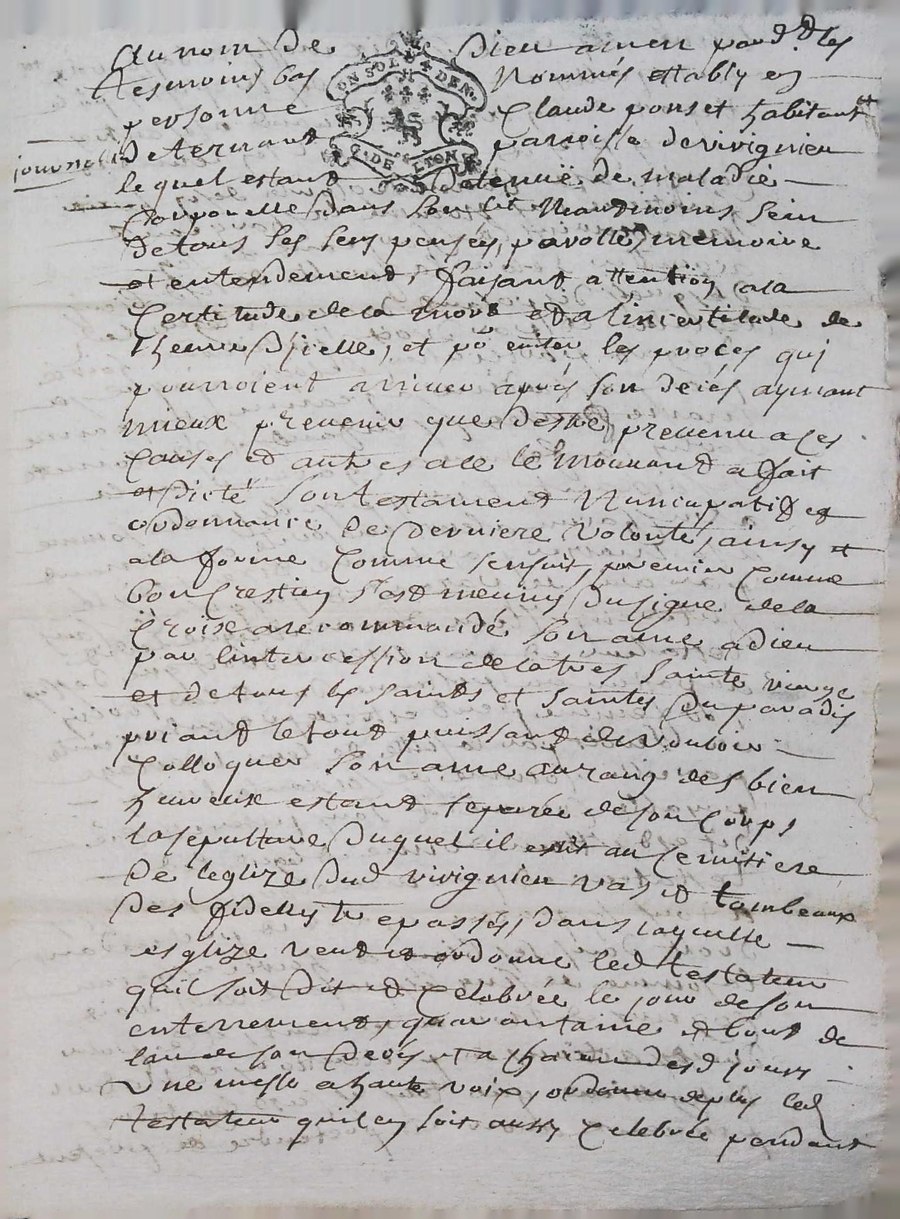 Au nom de Dieu amen pard.d les
tesmoins bas nommés estably en
personne Claude ponset habitant
de ternant paroisse de vivignieu
journalie
UN SOL 4 DEN.
G. DE LYON
lequel estant detenuë de maladie
Corporelle dans son lit neaudmoins sein
de tous ses sens pensey, parolle memoire
et entendement, faisant attention a la
Certitude de la mort et a lincertitude de
lheure dicelle, et po eviter les proces qui
pourroient arriuer aprés son decés aymant
mieux preuenir que destre preuenu a ces
Causes et autres a ce le mouuand a fait
et dicté son testament Nuncupatif et
ordonnance de derniere volonté, ainsy et
a la forme Comme sensuit, premier Comme
bon Crestien sest meuny du signe de la
Croix a recommandé son ame a dieu
par lintercession de la tres sainte vierge
et de tous les saints et saintes du paradis
priant le tout puissant de vouloir
Colloquer son ame au rang des bien
heureux estant separée de son Corps
la sepulture duquel il eslit au Cemitiere
de leglize dud vivignieu vas et tombeaux
des fidelles trepassés, dans laquelle
esglize veut et ordonne led testateur
quil soit dit et Celebrée le jour de son
enterrement, quarantaine et bout de
lan de son decés et a chacun desd jours
une messe a haute voix, ordonne de plus led
testateur quil en soit aussy Celebrée pendant